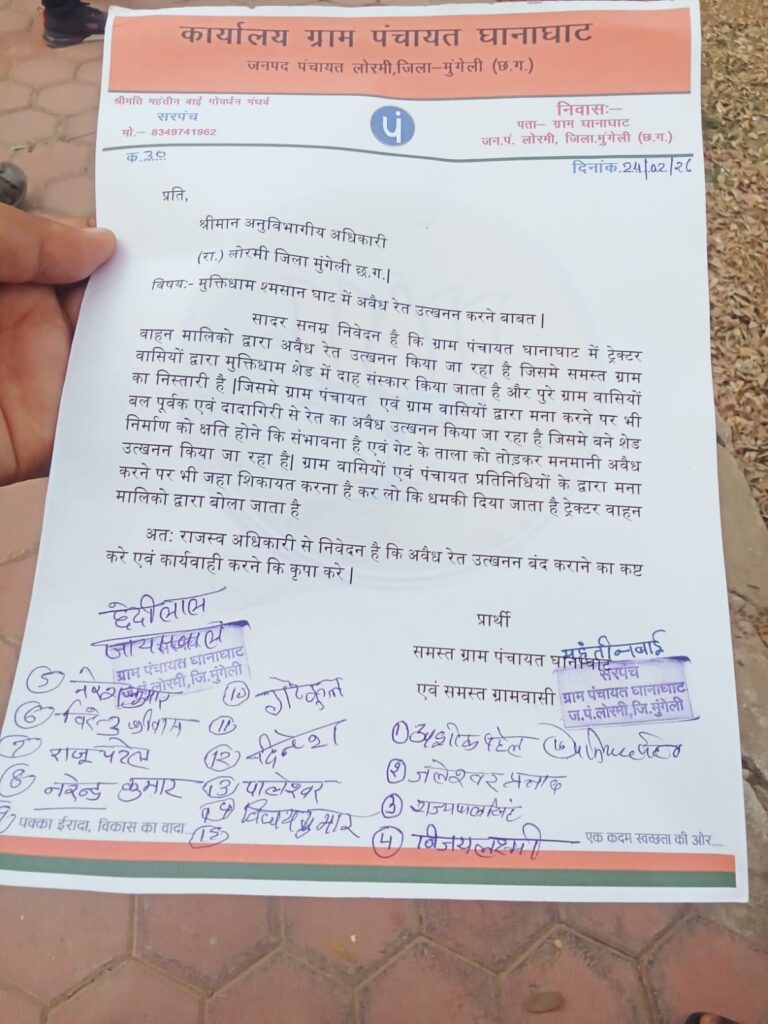 कार्यालय ग्राम पंचायत घानाघाट
जनपद पंचायत लोरमी,जिला–मुंगेली (छ.ग.)
श्रीमति महंतीन बाई गोवर्धन गंधर्व
सरपंच
मो.– 8349741962
पं
निवासः–
पता– ग्राम घानाघाट
जन.पं. लोरमी, जिला.मुंगेली (छ.ग.)
क.30
दिनांक.24/02/26
प्रति,
श्रीमान अनुविभागीय अधिकारी
(रा.) लोरमी जिला मुंगेली छ.ग.|
विषय:- मुक्तिधाम श्मसान घाट में अवैध रेत उत्खनन करने बाबत |
सादर सनम्र निवेदन है कि ग्राम पंचायत घानाघाट में ट्रेक्टर
वाहन मालिको द्वारा अवैध रेत उत्खनन किया जा रहा है जिसमे समस्त ग्राम
वासियों द्वारा मुक्तिधाम शेड में दाह संस्कार किया जाता है और पुरे ग्राम वासियों
का निस्तारी है |जिसमे ग्राम पंचायत एवं ग्राम वासियों द्वारा मना करने पर भी
बल पूर्वक एवं दादागिरी से रेत का अवैध उत्खनन किया जा रहा है जिसमे बने शेड
निर्माण को क्षति होने कि संभावना है एवं गेट के ताला को तोड़कर मनमानी अवैध
उत्खनन किया जा रहा है| ग्राम वासियों एवं पंचायत प्रतिनिधियों के द्वारा मना
करने पर भी जहा शिकायत करना है कर लो कि धमकी दिया जाता है ट्रेक्टर वाहन
मालिको द्वारा बोला जाता है
अत: राजस्व अधिकारी से निवेदन है कि अवैध रेत उत्खनन बंद कराने का कष्ट
करे एवं कार्यवाही करने कि कृपा करे |
प्रार्थी
समस्त ग्राम पंचायत घानाघाट
एवं समस्त ग्रामवासी
महंतीनबाई
सरपंच
ग्राम पंचायत घानाघाट
ज.पं.लोरमी,जि.मुंगेली
छेदीलाल
जायसवाल
ग्राम पंचायत घानाघाट
ज.पं.लोरमी,जि.मुंगेली
① अशोक पटेल
② जलेश्वर प्रसाद
③ राज्यपाल सिंह
④ विजयलक्ष्मी
⑤ नरेश कुमार
⑥
⑦ राजू पटेल
⑧ नरेन्द्र कुमार
⑩
⑪
⑫
⑬ पालेश्वर
⑭ विजय कुमार
⑮
⑯
पक्का ईरादा, विकास का वादा...
एक कदम स्वच्छता की ओर...